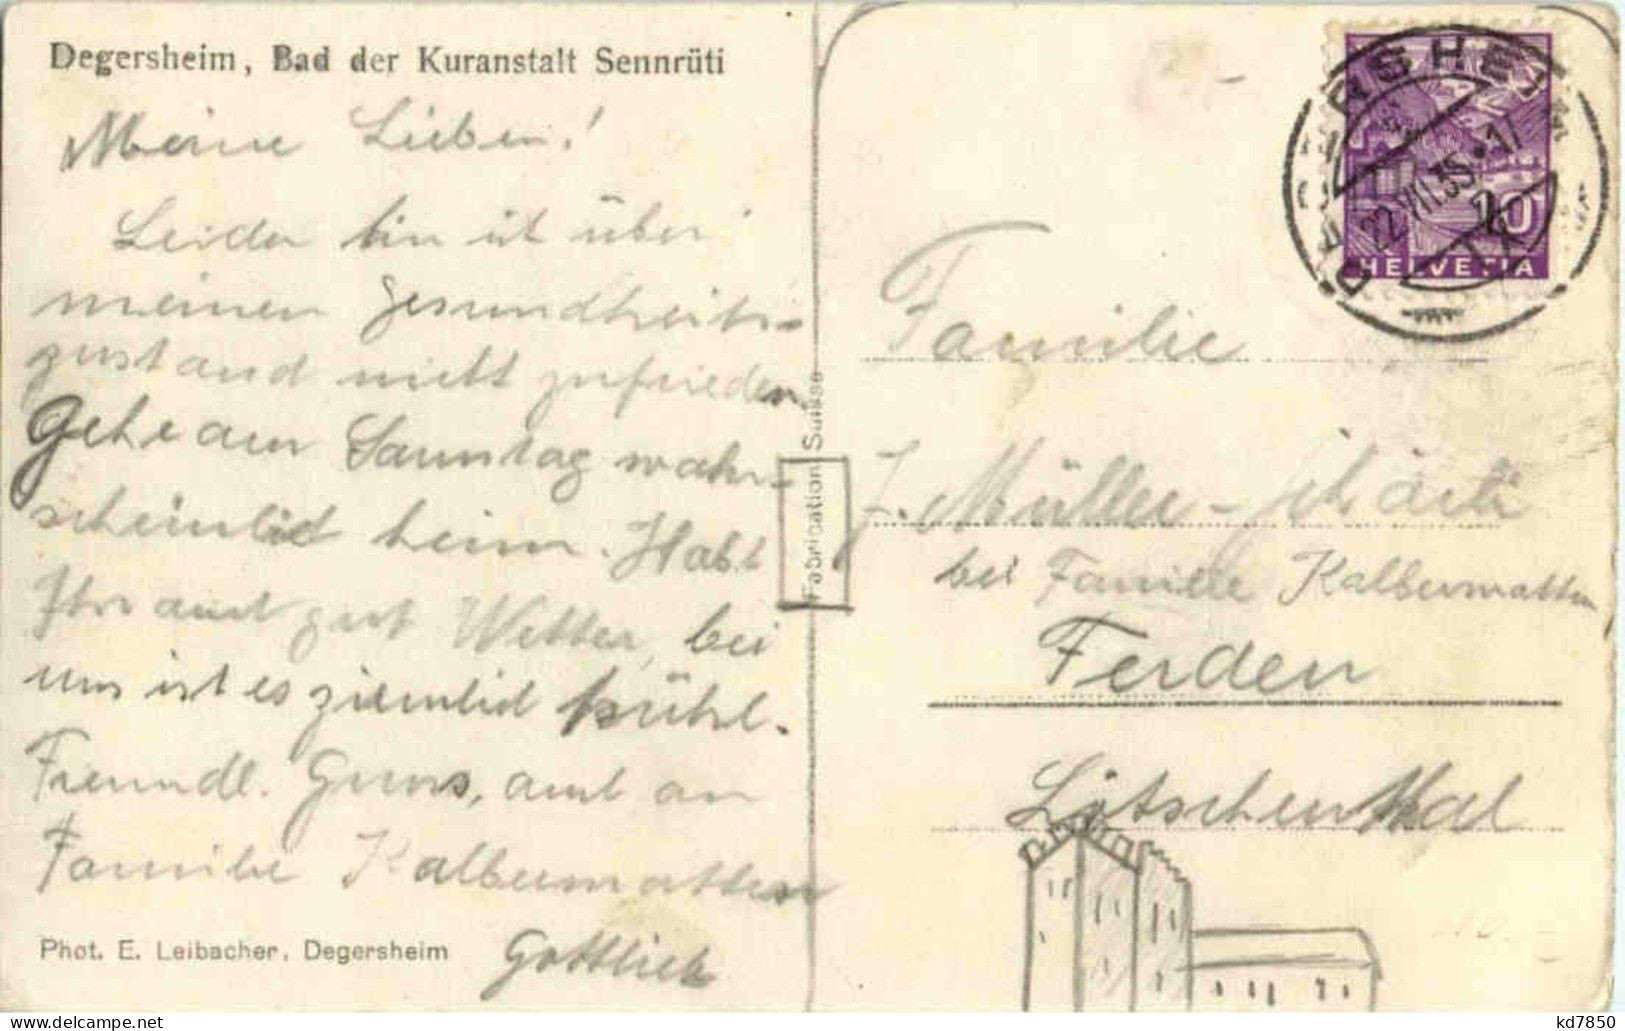 Degersheim, Bad der Kuranstalt Sennrüti
Meine Lieben!
Leider bin ich über
meinen Gesundheits-
zustand nicht zufrieden
Gehe am Sonntag wahr-
scheinlich heim. Habt
Ihr auch gut Wetter, bei
uns ist es ziemlich kühl.
Freundl. Gruss, auch an
Familie Kalbermatten
Gottlieb
Phot. E. Leibacher, Degersheim
Fabrication Suisse
DEGERSHEIM
22.VII.35.17
10
HELVETIA
Familie
J. Müller-
bei Familie Kalbermatten
Ferden
Lötschenthal
kd7850